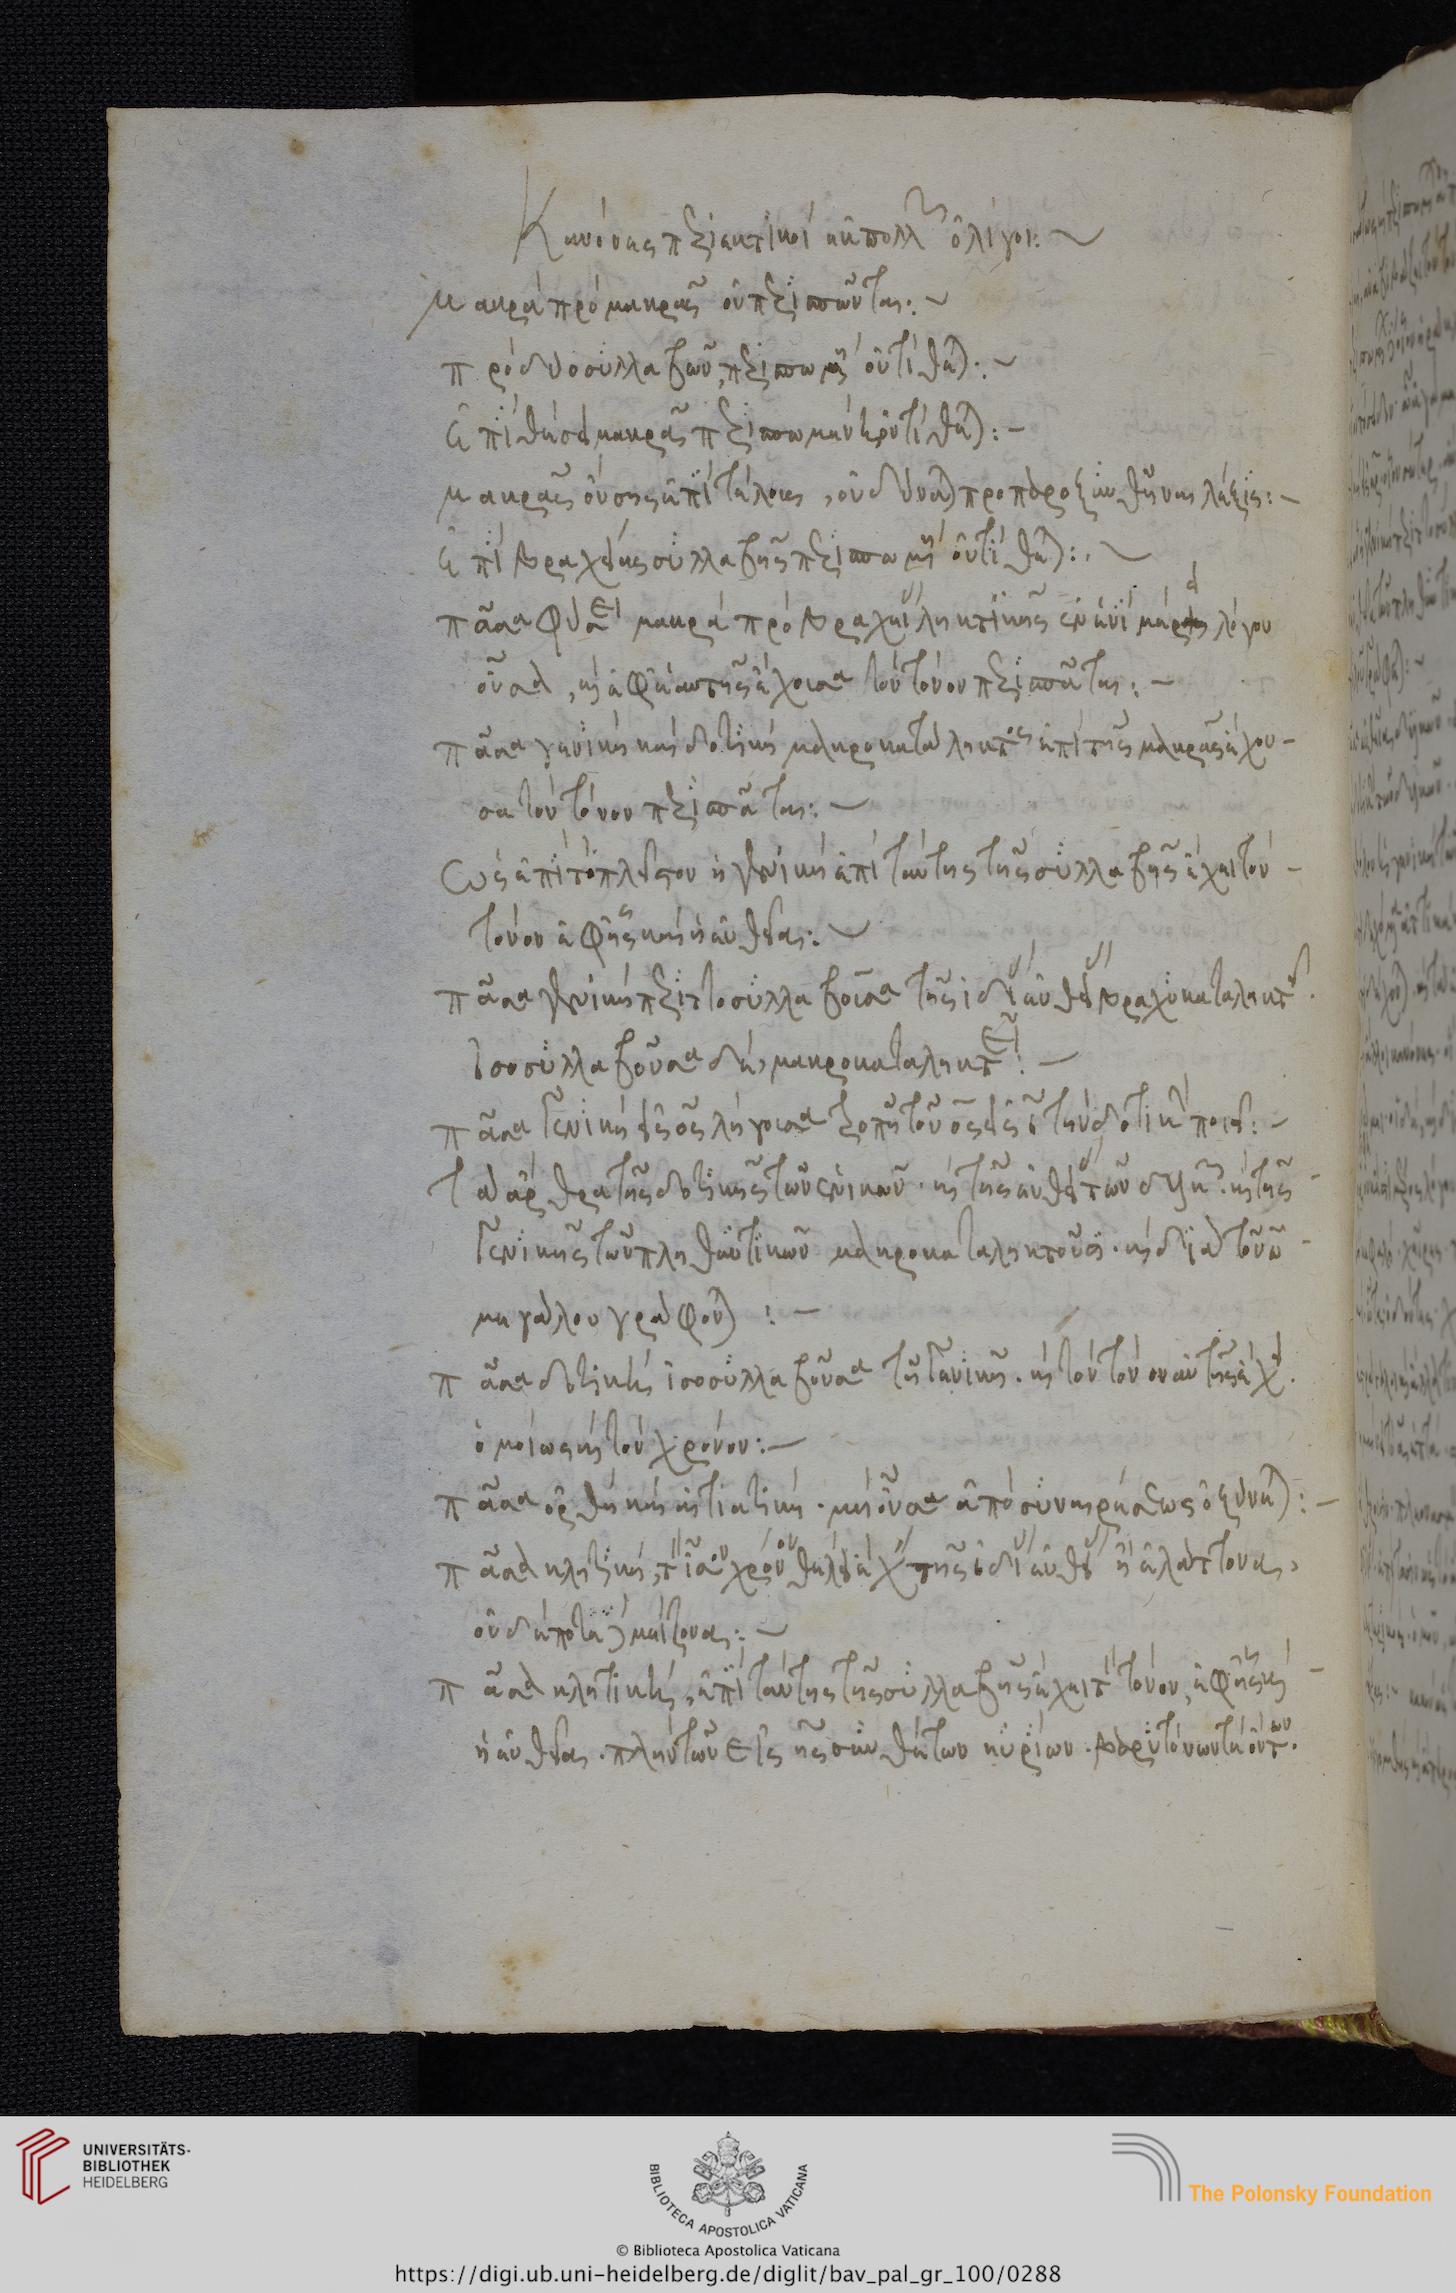 Κανόνες πρακτικοὶ ἐκ πολλῶν ὀλίγοι:
μακρὰ πρὸ μακρᾶς οὐ περισπᾶται:
πρὸ δύο συλλαβῶν, περισπωμένη οὐ τίθεται:
Ἐπὶ θέσει μακρᾶς περισπωμένη οὐ τίθεται:
μακρᾶς οὔσης ἐπὶ τέλους, οὐ δύναται προπαροξυνθῆναι λέξις:
Ἐπὶ βραχείας συλλαβῆς περισπωμένη οὐ τίθεται:
πᾶσα φύσει μακρὰ πρὸ βραχυληκτικῆς ἐν ἑνὶ μέρει λόγου
οὖσα, καὶ ἐφ' ἑαυτῆς ἔχουσα τὸν τόνον περισπᾶται:
πᾶσα γενικὴ καὶ δοτικὴ μακροκατάληκτος ἐπὶ τῆς μακρᾶς ἔχου-
σα τὸν τόνον περισπᾶται:
Ὡς ἐπὶ τὸ πλεῖστον ἡ γενικὴ ἐπὶ ταύτης τῆς συλλαβῆς ἔχει τὸν
τόνον ἐφ' ἧς καὶ ἡ εὐθεῖα:
πᾶσα γενικὴ περιττοσυλλαβοῦσα τῆς ἰδίας εὐθείας βραχυκαταληκτεῖ.
Ἰσοσυλλαβοῦσα δὲ, μακροκαταληκτεῖ:
πᾶσα γενικὴ εἰς ος λήγουσα τροπῇ τοῦ ος εἰς ι τὴν δοτικὴν ποιεῖ:
Τὰ ἄρθρα τῆς δοτικῆς τῶν ἑνικῶν. καὶ τῆς εὐθείας τῶν δυϊκῶν. καὶ τῆς
γενικῆς τῶν πληθυντικῶν μακροκαταληκτοῦσι. καὶ διὰ τοῦ ω
μεγάλου γράφονται:
πᾶσα δοτικὴ ἰσοσυλλαβοῦσα τῇ γενικῇ. καὶ τὸν τόνον αὐτῆς ἔχει.
ὁμοίως καὶ τὸν χρόνον:
πᾶσα ὀρθὴ καὶ αἰτιατικὴ. μὴ οὖσα ἀπὸ συναιρέσεως ὀξύνεται:
πᾶσα κλητικὴ, τὸν ἴσον χρόνον θέλει ἔχειν τῆς ἰδίας εὐθείας ἢ ἐλάττονα,
οὐδέποτε μείζονα:
πᾶσα κλητικὴ, ἐπὶ ταύτης τῆς συλλαβῆς ἔχει τὸν τόνον, ἐφ' ἧς καὶ
ἡ εὐθεῖα. πλὴν τῶν εἰς ης συνθέτων κυρίων. βαρυτόνων τε ὄντων.
UNIVERSITÄTS-
BIBLIOTHEK
HEIDELBERG
BIBLIOTECA APOSTOLICA VATICANA
The Polonsky Foundation
© Biblioteca Apostolica Vaticana
https://digi.ub.uni-heidelberg.de/diglit/bav_pal_gr_100/0288